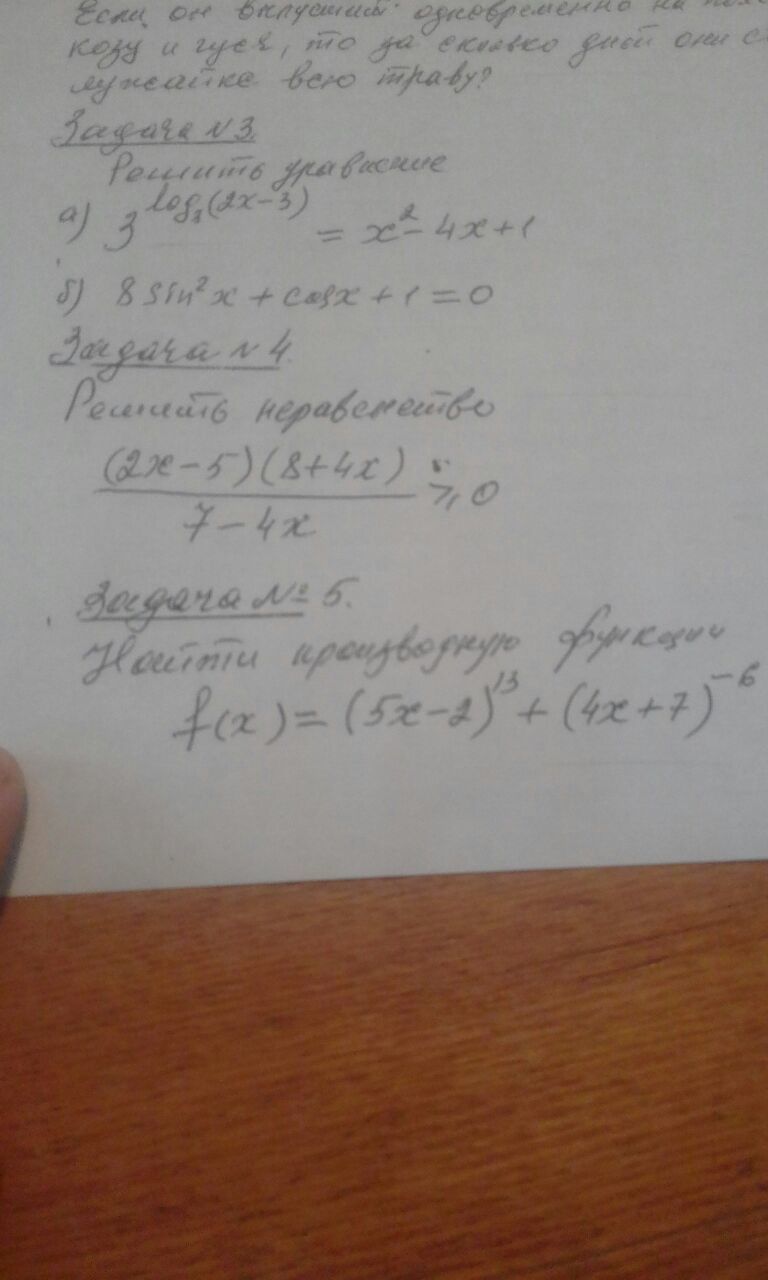 Если он выпустит одновременно на
козу и гуся, то за сколько дней они
лужайке всю траву?
Задача №3.
Решить уравнение
а) 3^log₃(2x-3) = x² - 4x + 1
б) 8 sin²x + cosx + 1 = 0
Задача №4.
Решить неравенство
(2x-5)(8+4x)
7-4x
⩾ 0
Задача № 5.
Найти производную функции
f(x) = (5x-2)¹³ + (4x+7)⁻⁶